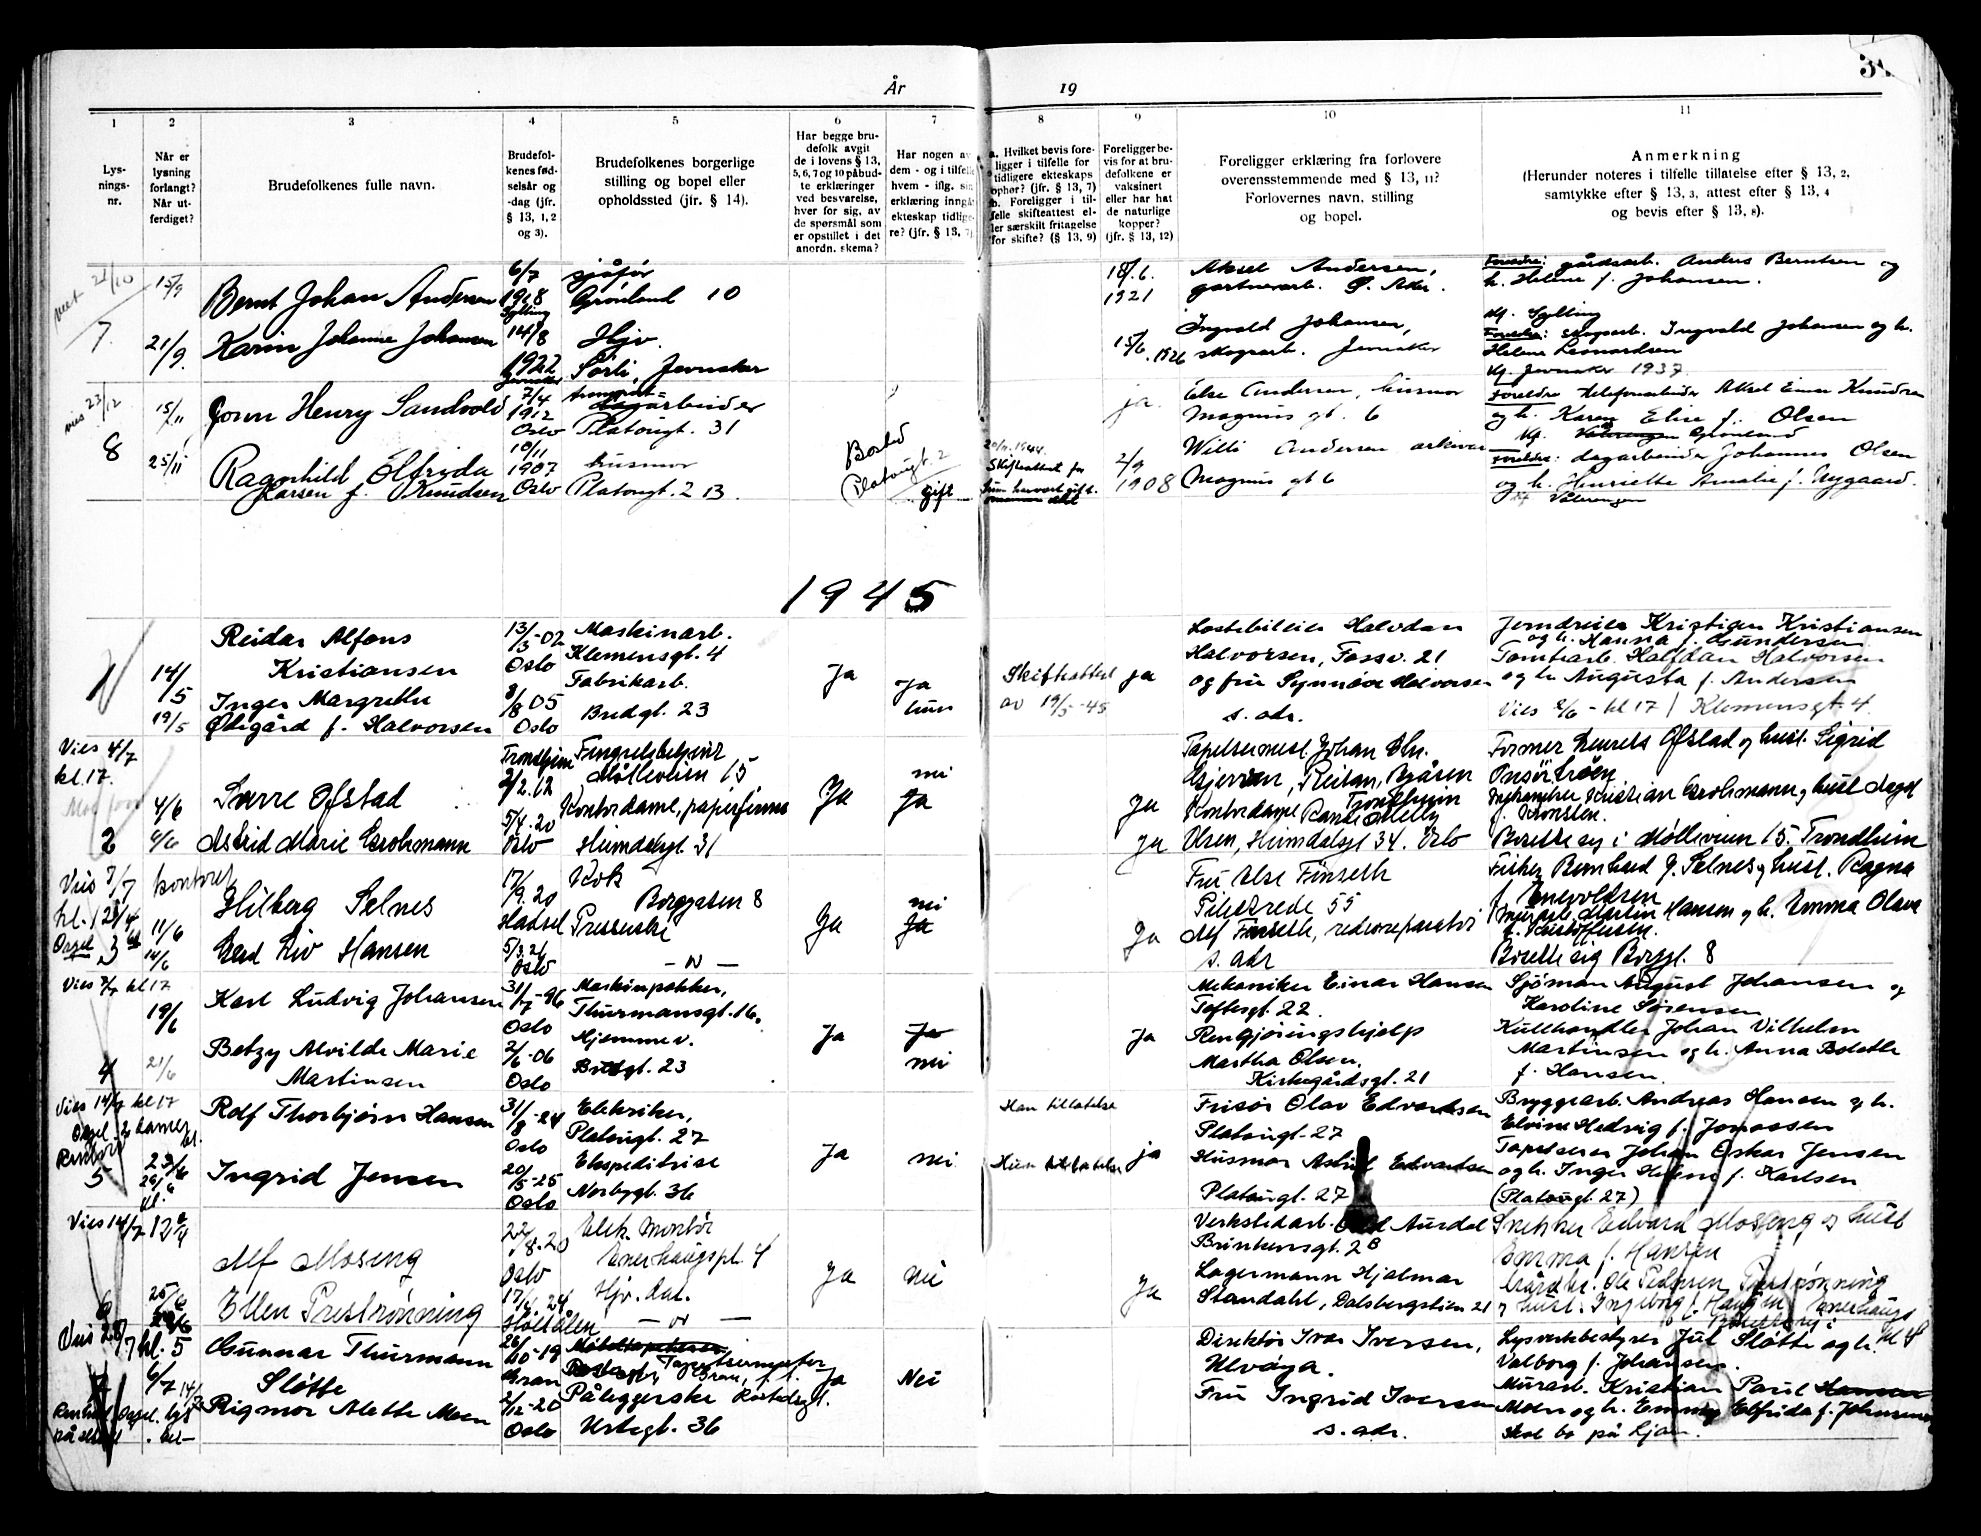 År 19
1
2
3
4
5
6
7
8
9
10
11
Lys-
nings-
nr.
Når er
lysning
forlangt?
Når ut-
ferdiget?
Brudefolkenes fulle navn.
Brudefol-
kenes fød-
selsår og
-dag (jfr.
§ 13, 1, 2
og 3).
Brudefolkenes borgerlige
stilling og bopel eller
opholdssted (jfr. § 14).
Har begge bru-
defolk avgit
de i lovens § 13,
5, 6, 7 og 10 påbud-
te erklæringer
ved besvarelse,
hver for sig, av
de spørsmål som
er opstillet i det
anordn. skema?
Har nogen av
dem - og i tilfelle
hvem - iflg. sin
erklæring inngå
ekteskap tidlige-
re? (jfr. § 13, 7)
a. Hvilket bevis fore-
ligger i tilfelle for
tidligere ekteskaps
ophør? (jfr. § 13, 7)
b. Foreligger i til-
felle skifteattest el-
ler særskilt fritagelse
for skifte? (§ 13, 9)
Foreligger be-
vis for at bru-
defolkene er
vaksinert
eller har hat
de naturlige
kopper?
(jfr. § 13, 12)
Foreligger erklæring fra forlovere
overensstemmende med § 13, 11?
Forlovernes navn, stilling
og bopel.
Anmerkning
(Herunder noteres i tilfelle tillatelse efter § 13, 2,
samtykke efter § 13, 3, attest efter § 13, 4
og bevis efter § 13, 8).
21/10
7
15/9
21/9
Bernt Johan Andersen
Karin Johanne Johansen
6/7
1918
Sylling
14/8
1922
Jevnaker
sjåfør
Grønland 10
Hjv.
Sørli, Jevnaker
18/6.
1921
15/6 1926
Aksel Andersen,
gartnerarb. Ø. Aker.
Ingvald Johansen,
skogsarb. Jevnaker
Foreldre: gårdsarb. Anders Berntsen og
h. Helene f. Johansen.
Kf. Sylling
Foreldre: skogsarb. Ingvald Johansen og h.
Helene Leonardsen
Kf. Jevnaker 1937
vies 23/12
8
15/11
25/11
Gorm Henry Sandvold
Ragnhild Elfrida
Larsen f. Knudsen
7/4
1912
Oslo
10/11
1907
Oslo
transport=
dagarbeider
Platougt. 31
husmor
Platougt. 2 B
Bosted
Platougt. 2
gift
20/11.1944
Skifteattest for
hun hvervet gift.
ja.
2/9
1908
Else Andersen, husmor
Magnus gt. 6
Willi Andersen arkivar
Magnus gt 6
Foreldre telefonarbeider Aksel Einar Knudsen
og h. Karen Elise f. Olsen
Kf. Vålerengen Grønland
Foreldre: dagarbeider Johannes Olsen
og h. Henriette Amalie f. Nygaard.
Kf Vålerengen
1945
1
14/5
19/5
Reidar Alfons
Kristiansen
Inger Margrethe
Ødegård f. Halvorsen
13/3-02
Oslo
8/8 05
Oslo
Maskinarb.
Klemensgt. 4
Fabrikarb.
Bredgt. 23
Ja
Ja
hun
Skifteattest
av 19/5-45
ja
Lastebileier Halvdan
Halvorsen, Fossv. 21
og fru Synnøve Halvorsen
s. adr.
Jerndreier Kristian Kristiansen
og h. Hanna f. Gundersen
Tomtearb. Halfdan Halvorsen
og h Augusta f. Andersen
Vies 2/6 - kl 17 / Klemensgt. 4.
Vies 4/7
kl. 17.
2
4/6
4/6
Sverre Ofstad
Astrid Marie Grohmann
Trondheim
2/2.12
5/4.20
Oslo
Fengselsbetjent
Mølleveien 15
Kontordame, papirfirma
Heimdalsgt. 31
Ja
nei
Ja
Ja
Ja
Tapetsermest. Johan Chr.
Gjervan, Reitan, Byåsen
Trondheim
Kontordame Randi Melby
Olsen, Heimdalsgt 34. Oslo
Former Laurits Ofstad og hust. Sigrid
Kristian Grohmann og hust Dagny
Bosette seg i Mølleveien 15. Trondheim
Vies 7/7
kl. 12 1/4
Orgel
3
kontoret
11/6
14/6
Hilberg Selnes
Gerd Liv Hansen
17/9.20
Hadsel
5/3.21
Oslo
Kok
Borggaten 8
Presserske
— " —
Ja
nei
Ja
Ja
Fru Else Finseth
Pilestrede 55
Alf Finseth, radioreparatør
s. adr
Fisker Bernhard J. Selnes og hust. Ragna
f. Enevoldsen
Murarb. Martin Hansen og h. Emma Olava
f. Kristoffersen.
Bosette sig Borggt. 8
Vies 7/7 kl 17
4
19/6
21/6
Karl Ludvig Johansen
Betzy Alvilde Marie
Martinsen
31/7-96
Oslo
2/6-06
Oslo
Maskinpakker,
Thurmansgt. 16.
Hjemmev.
Bredgt. 23
Ja
Ja
nei
Ja
Mekaniker Einar Hansen
Toftesgt. 22.
Rengjøringshjelp
Martha Olsen,
Kirkegårdsgt. 21
Sjømann August Johansen og
Karoline Sørensen
Kullhandler Johan Vilhelm
Martinsen og h. Anna Bolette
f. Hansen.
Vies 14/7 kl 17
5
23/6
Rolf Thorbjørn Hansen
Ingrid Jensen
31/8-24
Oslo
20/5-25
Oslo
Elektriker,
Platougt. 27
Ekspeditrise
Norbygt. 36
Ja
nei
Han tillatelse
Hun tillatelse
ja
Frisør Olav Edvardsen
Platougt. 27
Husmor Astrid Edvardsen
Platougt. 27
Bryggearb. Andreas Hansen og h.
Elvine Hedvig f. Jonassen
Tapetserer Johan Oskar Jensen
og h. Inger Helene f. Karlsen
(Platougt. 27)
Vies 14/7 12 3/4
6
25/6
Alf Moseng
Ellen Prestrønning
22/8.20
Oslo
17/6.24
Holtålen
Elek. Montør
Enerhaugspl. 4
Hjv. Dat.
— " —
Ja
Nei
Ja
Verkstedarb. Aurdal
Brinkensgt. 2B
Lagermann Hjalmar
Standahl, Dalsbergstien 21
Snekker Edvard Moseng og hust
Emma f. Hansen
Gårdbr. Ole Pedersen Prestrønning
og hust. Ingeborg f. Haugen
Vies 28/7 kl. 5
6/7
14/7
Gunnar Thurmann
Sløtte
Rigmor Alette Moen
26/10-19
Gran
2/12-20
Oslo
Møbeltapetserer
Tapetserermester
Gran,
Påleggerske
Urtegt. 36
Ja
Nei
Direktør Ivar Iversen,
Ulvøya.
Fru Ingrid Iversen
s. adr.
Lysverkbestyrer Jul Sløtte og h.
Valborg f. Johansen.
Murarb. Kristian Paul Hansen
Moen og h. Emmy Elfrida f. Johansen
skal bo på Ljan.